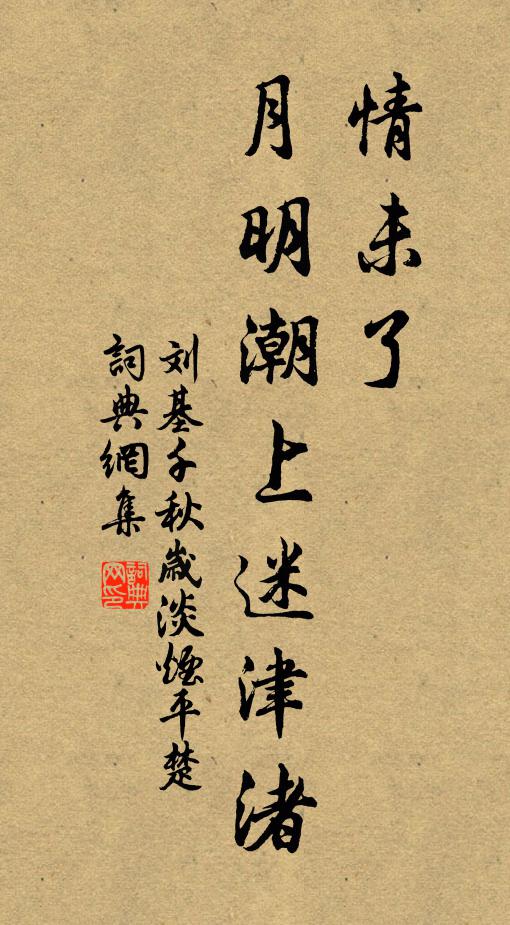 情未了
月明潮上迷津渚
刘基千秋岁淡烟平楚
詞典網集
詞典网印